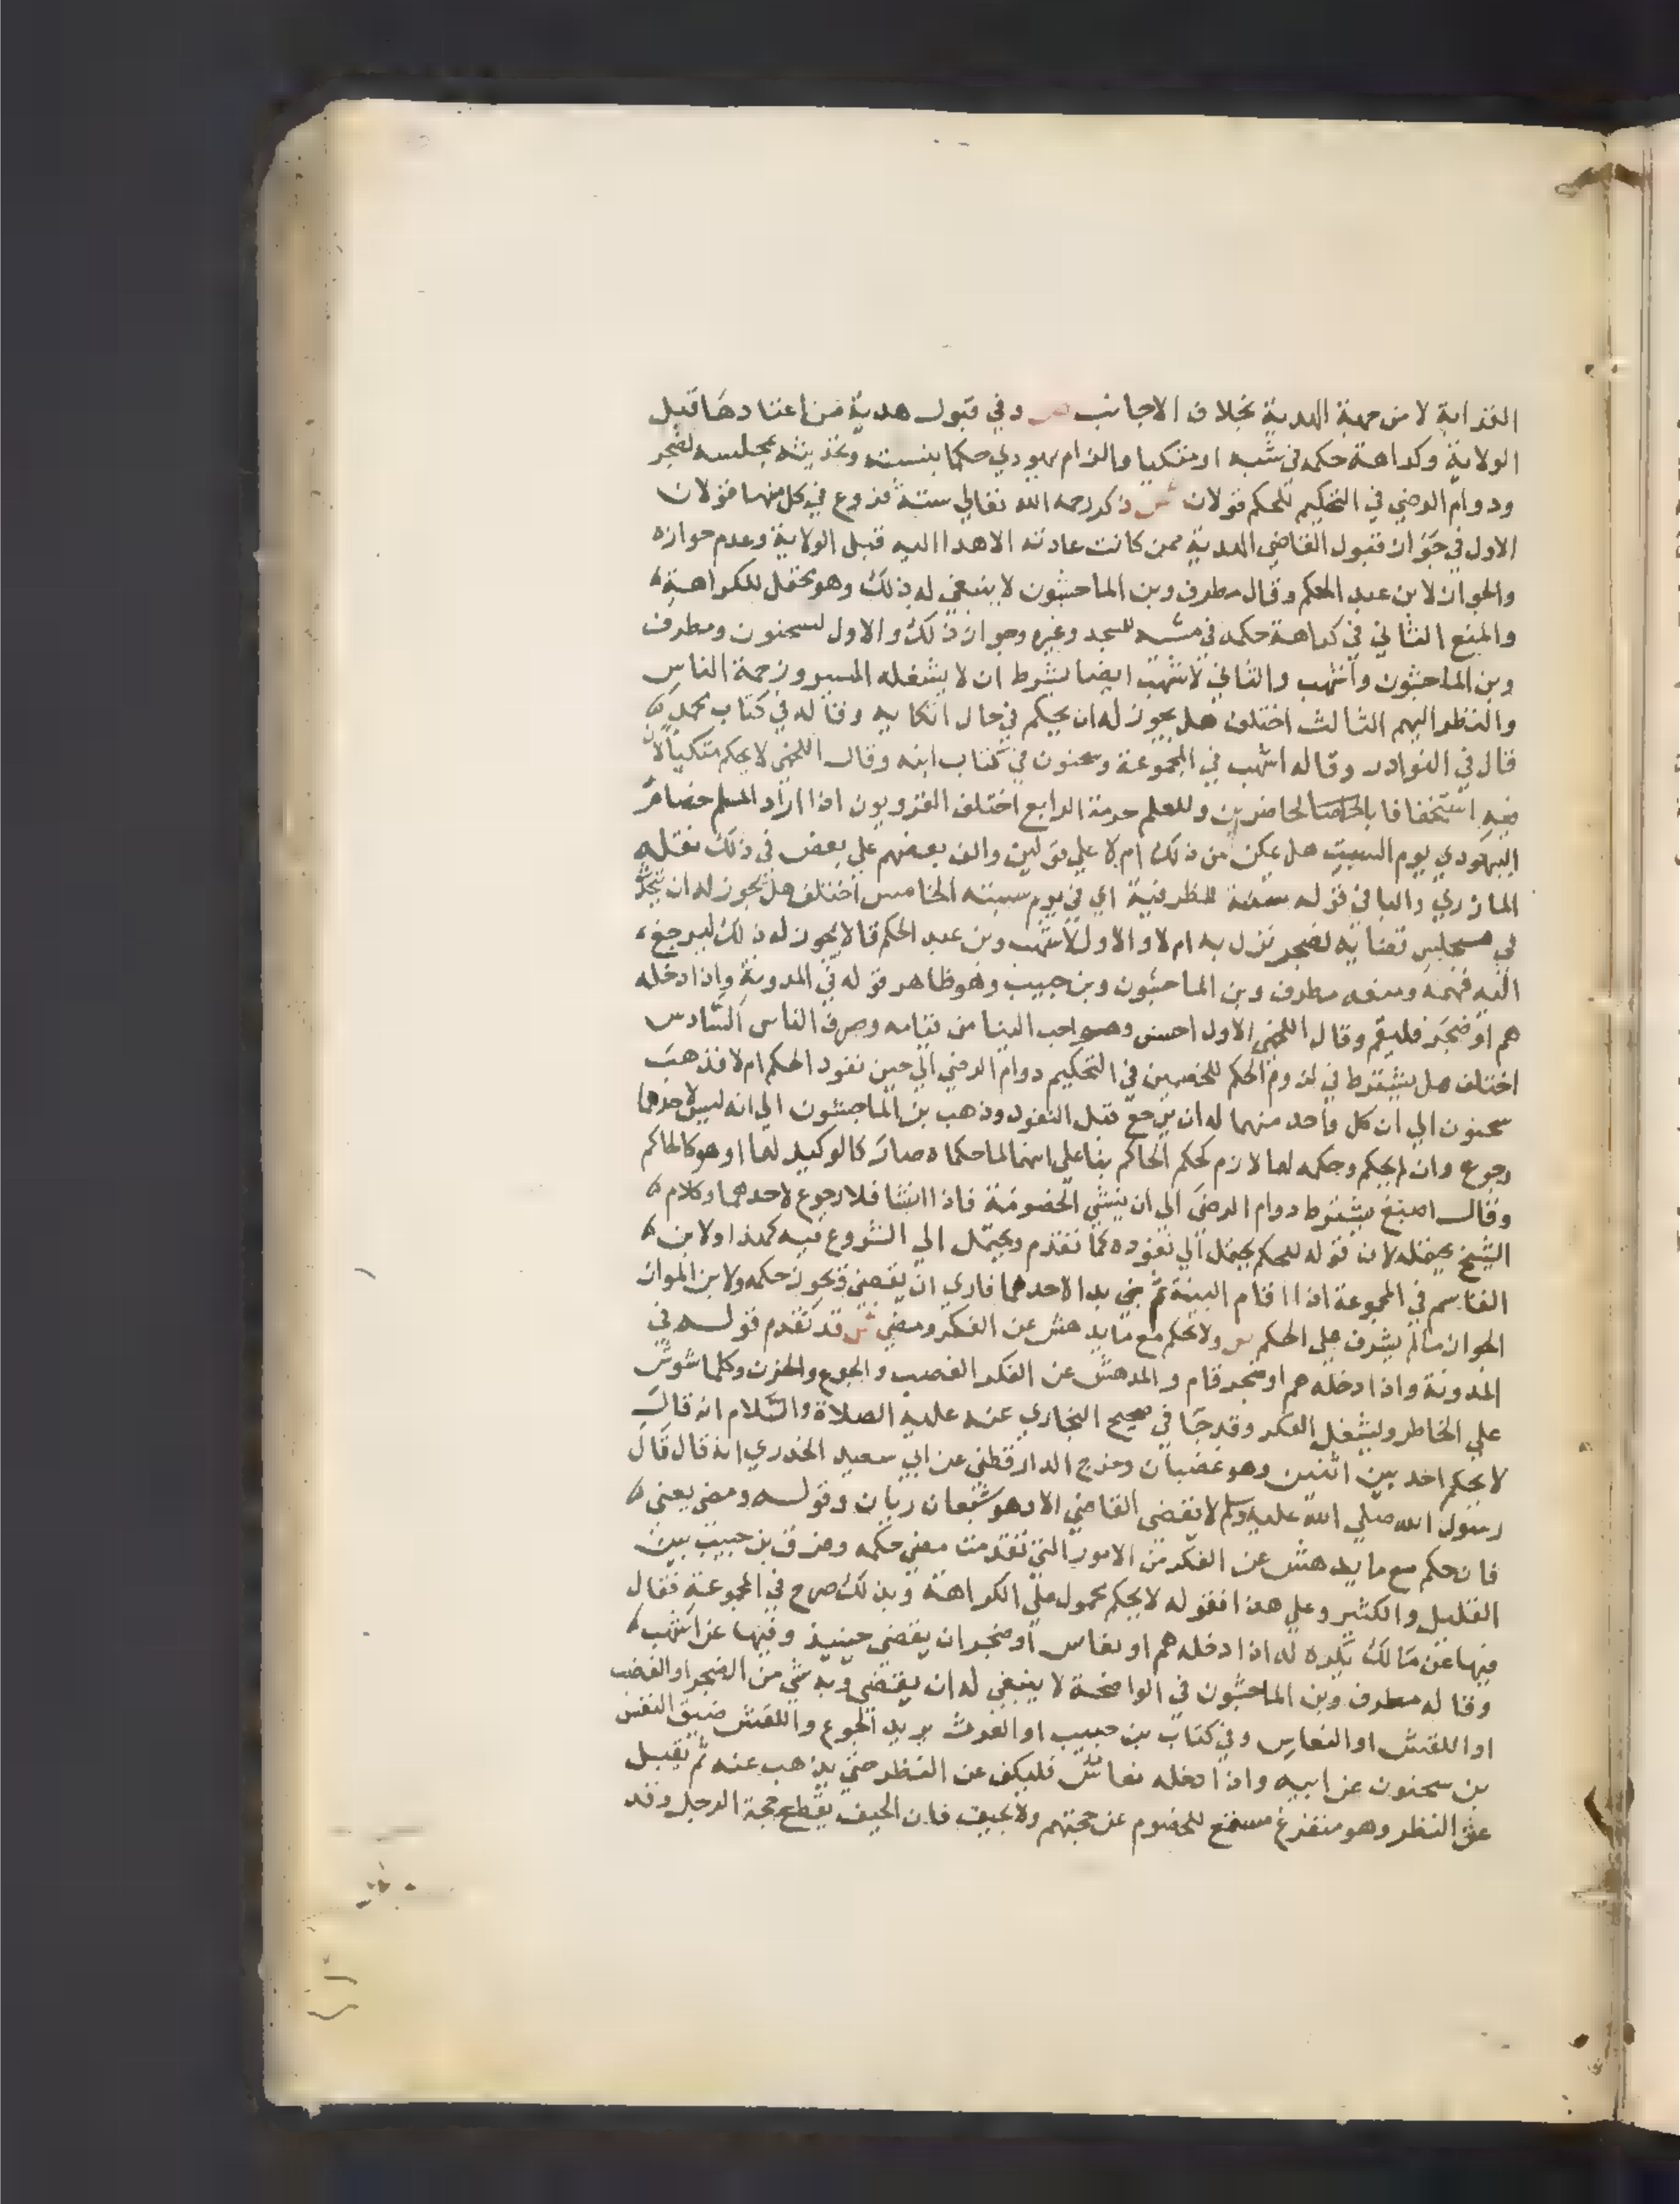 القرابة لا من جهة الهدية بخلاف الاجانب ص وفي قبول هدية من اعتادها قبل
الولاية وكراهة حكمه في مشيه او متكيا والزام يهودي حكما بسبته وتحديثه بمجلسه لضجر
ودوام الرضي في التحكيم للحكم قولان ش ذكر رحمه الله تعالي ستة فروع في كل منها قولان
الاول في جواز قبول القاضي الهدية ممن كانت عادته الاهدا اليه قبل الولاية وعدم جوازه
والجواز لابن عبد الحكم وقال مطرف وبن الماجشون لا ينبغي له ذلك وهو محتمل للكراهة
والمنع الثاني في كراهة حكمه في مشيه للمسجد وغيره وجواز ذلك والاول لسحنون ومطرف
وبن الماجشون واشهب والثاني لاشهب ايضا بشرط ان لا يشغله المسير وزحمة الناس
والنظر اليهم الثالث اختلف هل يجوز له ان يحكم في حال اتكايه وقاله في كتاب محمد
قال في النوادر وقاله اشهب في المجموعة وسحنون في كتاب ابنه وقال اللخمي لا يحكم متكيا لان
فيه استخفافا بالحاضرين وللعلم حرمة الرابع اختلف القرويون اذا اراد المسلم خصام
اليهودي يوم السبت هل يمكن من ذلك ام لا علي قولين والف بعضهم علي بعض في ذلك نقله
المازري والبا في قوله بسبته للظرفية اي في يوم سبته الخامس اختلف هل يجوز له ان يتحدث
في مجلس قضائه لضجر نزل به ام لا والاول لاشهب وبن عبد الحكم قالا يجوز له ذلك ليرجع
اليه فهمه ومنعه مطرف وبن الماجشون وبن حبيب وهو ظاهر قوله في المدونة واذا دخله
هم او ضجر فليقم وقال اللخمي الاول احسن وهو احب الينا من قيامه وصرف الناس السادس
اختلف هل يشترط في لزوم الحكم للخصمين في التحكيم دوام الرضي الي حين نفوذ الحكم ام لا فذهب
سحنون الي ان كل واحد منهما له ان يرجع قبل النفوذ وذهب بن الماجشون الي انه ليس لاحدهما
رجوع وان لم يحكم وحكمه لهما لازم كحكم الحاكم بنا علي انهما لما حكماه صار كالوكيل لهما او هو كالحاكم
وقال اصبغ يشترط دوام الرضي الي ان ينشي الخصومة فاذا انشا فلا رجوع لاحدهما وكلام
الشيخ يحتمله لان قوله للحكم يحتمل الي نفوذه كما تقدم ويحتمل الي الشروع فيه كهذا ولابن
القاسم في المجموعة اذا اقام البينة ثم بدا لاحدهما فاري ان يقضي ويجوز حكمه ولابن المواز
الجواز ما لم يشرف علي الحكم ص ولا يحكم مع ما يدهش عن الفكر ومضي ش قد تقدم قوله في
المدونة واذا دخله هم او ضجر قام والمدهش عن الفكر الغضب والجوع والحزن وكلما شوش
علي الخاطر وليشغل الفكر وقد جا في صحيح البخاري عنه عليه الصلاة والسلام انه قال
لا يحكم احد بين اثنين وهو غضبان وخرج الدارقطني عن ابي سعيد الخدري انه قال قال
رسول الله صلي الله عليه وسلم لا يقضي القاضي الا وهو شبعان ريان وقوله ومضي يعني
فان حكم مع ما يدهش عن الفكر من الامور التي تقدمت مضي حكمه وفرق بن حبيب بين
القليل والكثير وعلي هذا فقوله لا يحكم محمول علي الكراهة وبذلك صرح في المجموعة فقال
فيها عن مالك يكره له اذا دخله هم او نعاس او ضجر ان يقضي حينيذ وفيها عن اشهب
وقاله مطرف وبن الماجشون في الواضحة لا ينبغي له ان يقضي وبه شي من الضجر او الغضب
او اللقس او النعاس وفي كتاب بن حبيب او الغرث يريد الجوع واللقس ضيق النفس
بن سحنون عن ابيه واذا دخله نعاس فليكف عن النظر حتي يذهب عنه ثم يقبل
علي النظر وهو متفرغ مستمع للخصوم عن حجتهم ولا يحيف فان الحيف يقطع حجة الرجل وقد